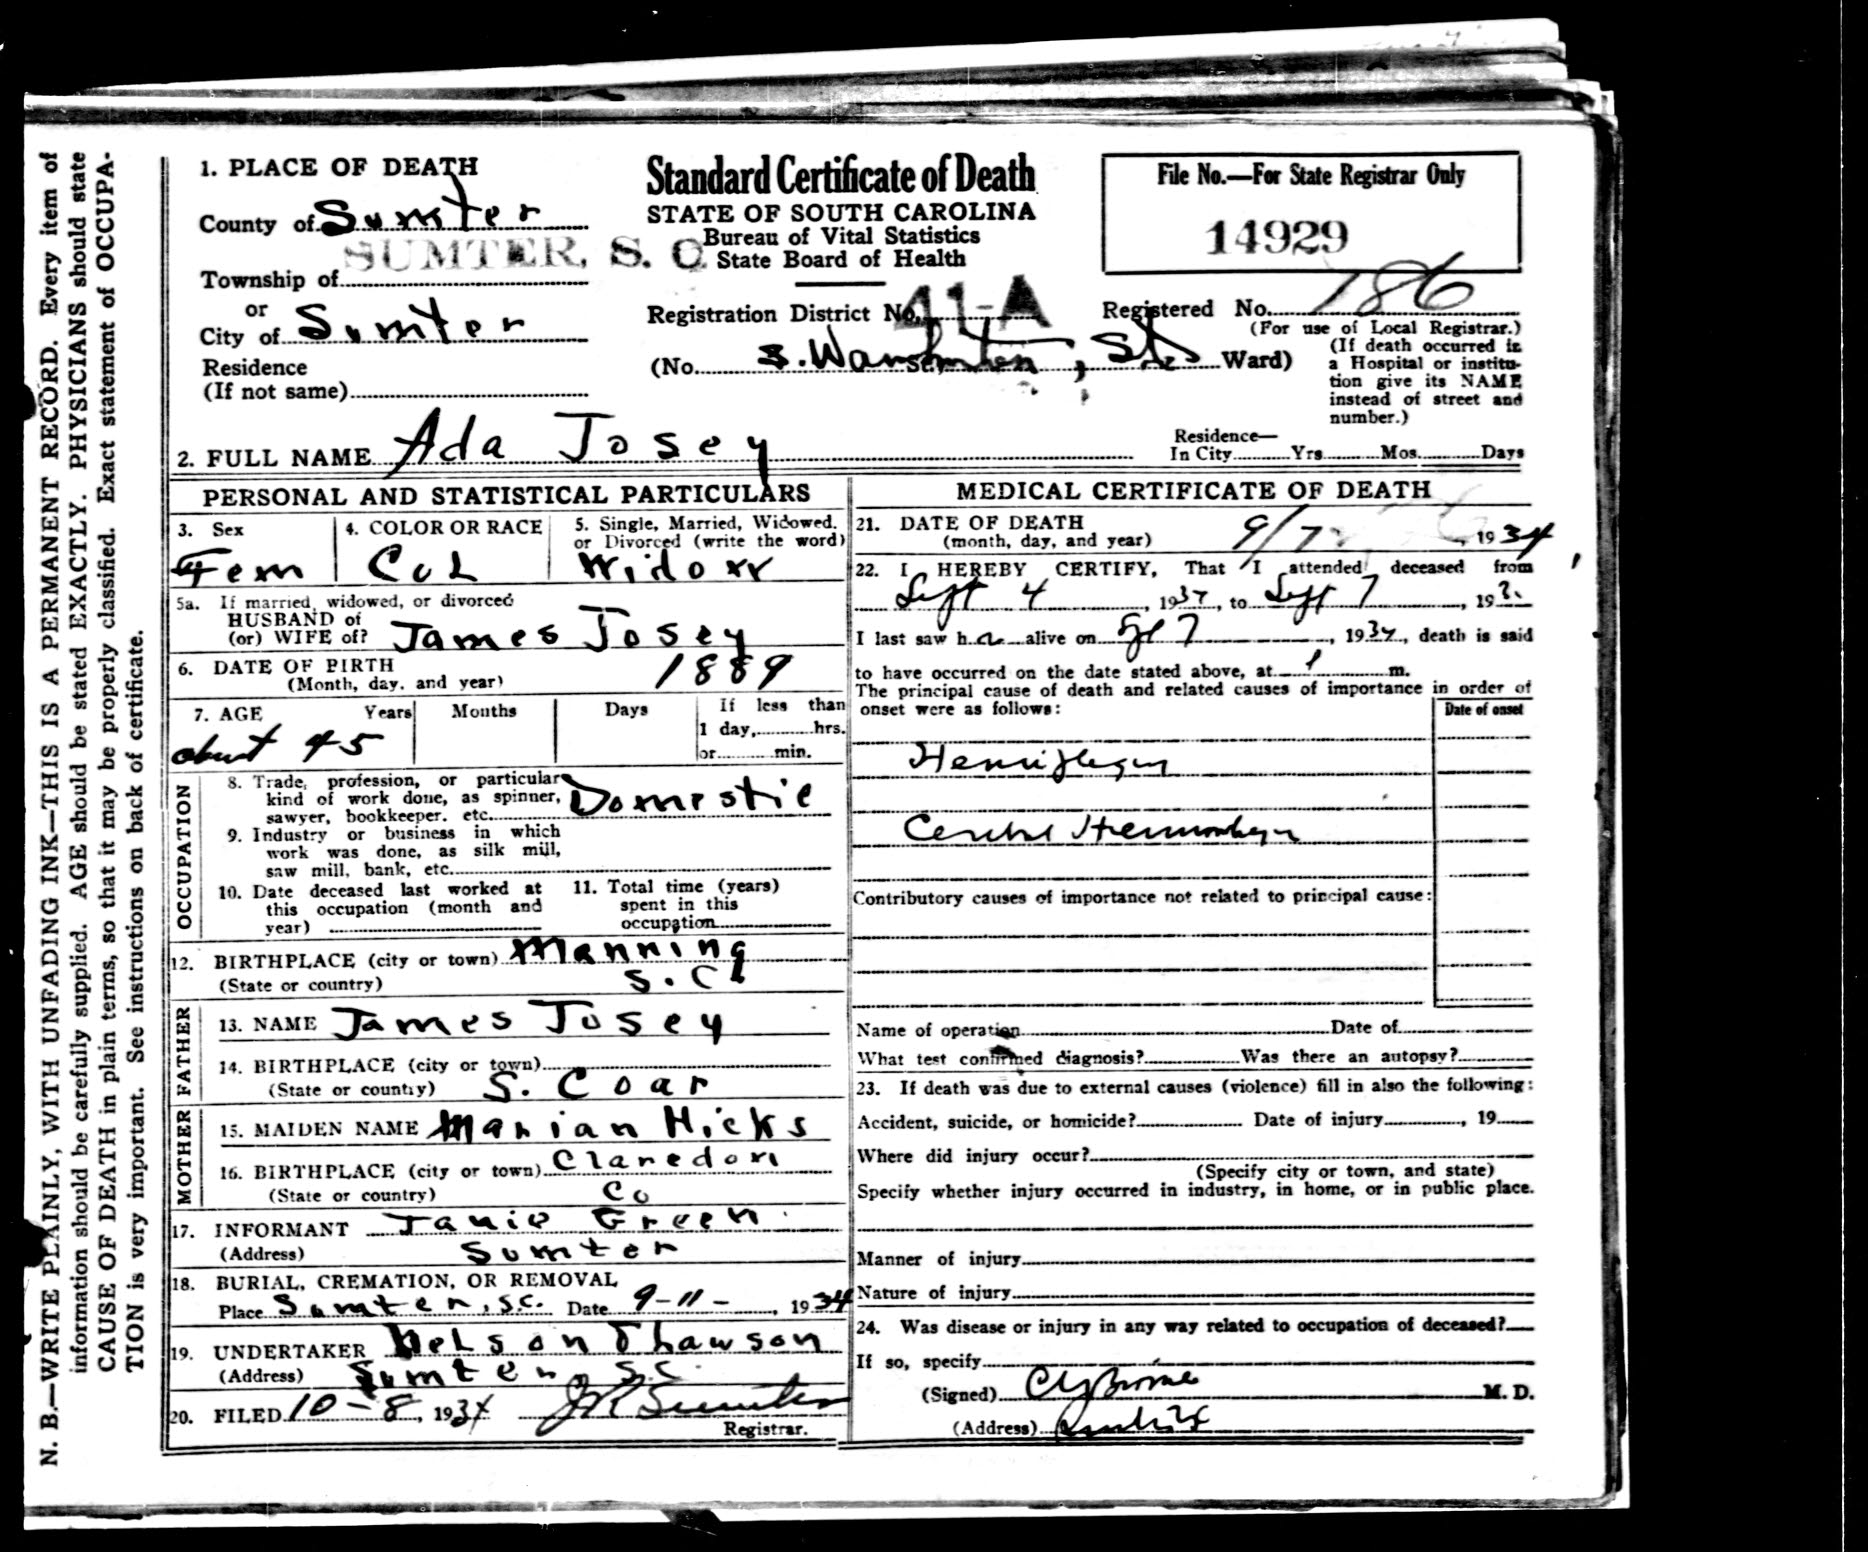 N. B.—WRITE PLAINLY, WITH UNFADING INK—THIS IS A PERMANENT RECORD. Every item of
information should be carefully supplied. AGE should be stated EXACTLY. PHYSICIANS should state
CAUSE OF DEATH in plain terms, so that it may be properly classified. Exact statement of OCCUPA-
TION is very important. See instructions on back of certificate.
1. PLACE OF DEATH
County of Sumter
SUMTER, S. C.
Township of
or
City of Sumter
Residence
(If not same)
Standard Certificate of Death
STATE OF SOUTH CAROLINA
Bureau of Vital Statistics
State Board of Health
Registration District No. 41-A
(No. S. Ward)
File No.—For State Registrar Only
14929
Registered No. 186
(For use of Local Registrar.)
(If death occurred in
a Hospital or institu-
tion give its NAME
instead of street and
number.)
2. FULL NAME Ada Josey
Residence—
In City Yrs Mos. Days
PERSONAL AND STATISTICAL PARTICULARS
3. Sex
Fem
4. COLOR OR RACE
Col
5. Single, Married, Widowed,
or Divorced (write the word)
Widow
5a. If married, widowed, or divorced
HUSBAND of
(or) WIFE of? James Josey
6. DATE OF BIRTH 1889
(Month, day, and year)
7. AGE Years Months Days If less than
about 45 1 day, hrs.
or min.
OCCUPATION
8. Trade, profession, or particular
kind of work done, as spinner,
sawyer, bookkeeper, etc. Domestic
9. Industry or business in which
work was done, as silk mill,
saw mill, bank, etc.
10. Date deceased last worked at
this occupation (month and
year)
11. Total time (years)
spent in this
occupation
12. BIRTHPLACE (city or town) Manning
(State or country) S. C
FATHER
13. NAME James Josey
14. BIRTHPLACE (city or town)
(State or country) S. Coar
MOTHER
15. MAIDEN NAME Marian Hicks
16. BIRTHPLACE (city or town) Claredon
(State or country) Co
17. INFORMANT Janie Green
(Address) Sumter
18. BURIAL, CREMATION, OR REMOVAL
Place Sumter, S.C. Date 9-11-, 1934
19. UNDERTAKER Nelson
(Address) Sumter, S.C.
20. FILED 10-8, 1934
Registrar.
MEDICAL CERTIFICATE OF DEATH
21. DATE OF DEATH 9/7, 1934
(month, day, and year)
22. I HEREBY CERTIFY, That I attended deceased from
Sept 4, 1934, to Sept 7, 193
I last saw h alive on 7, 1934, death is said
to have occurred on the date stated above, at m.
The principal cause of death and related causes of importance in order of
onset were as follows:
Date of onset
Hemiplegia
Cerebral Hemorrhage
Contributory causes of importance not related to principal cause:
Name of operation Date of
What test confirmed diagnosis? Was there an autopsy?
23. If death was due to external causes (violence) fill in also the following:
Accident, suicide, or homicide? Date of injury, 19
Where did injury occur?
(Specify city or town, and state)
Specify whether injury occurred in industry, in home, or in public place.
Manner of injury
Nature of injury
24. Was disease or injury in any way related to occupation of deceased?
If so, specify
(Signed) M. D.
(Address)